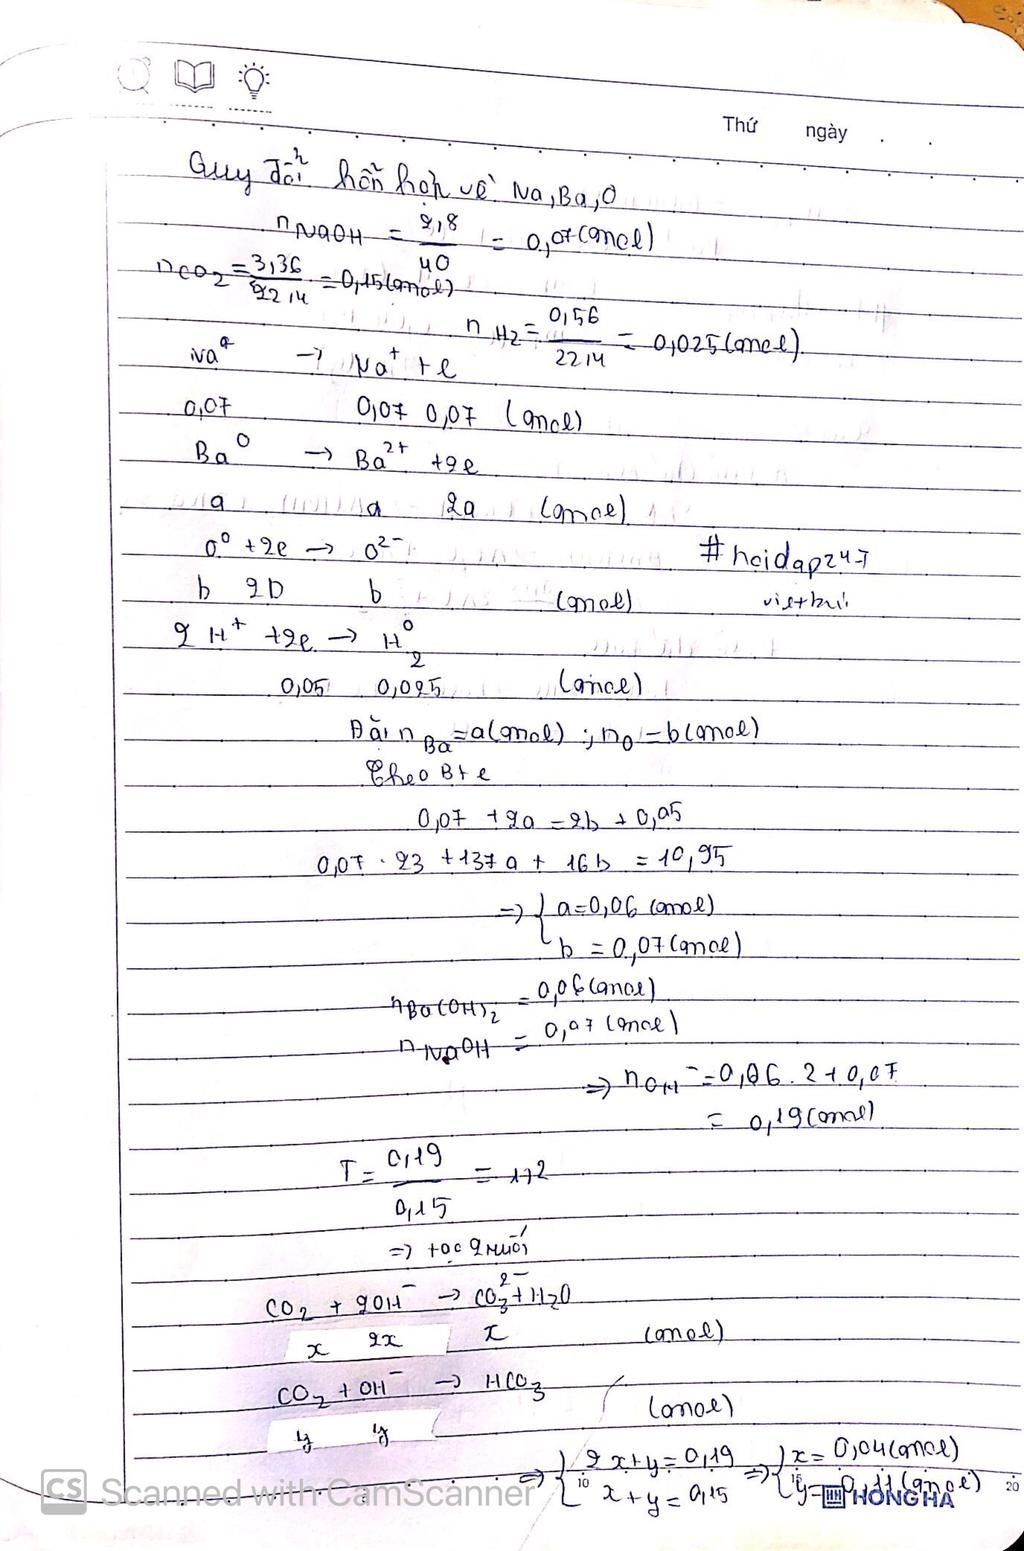 Thứ ngày
Quy đổi hỗn hợp về Na, Ba, O
n NaOH = 2,8 / 40 = 0,07 (mol)
n CO2 = 3,36 / 22,4 = 0,15 (mol)
n H2 = 0,56 / 22,4 = 0,025 (mol)
Na⁰ → Na⁺ + e
0,07 0,07 0,07 (mol)
Ba⁰ → Ba²⁺ + 2e
a a 2a (mol)
O⁰ + 2e → O²⁻ #hoidap247
b 2b b (mol)
2H⁺ + 2e → H₂⁰
0,05 0,025 (mol)
Đặt n Ba = a (mol) ; n O = b (mol)
Theo Bt e
0,07 + 2a = 2b + 0,05
0,07 . 23 + 137a + 16b = 10,95
=> { a = 0,06 (mol)
b = 0,07 (mol)
n Ba(OH)2 = 0,06 (mol)
n NaOH = 0,07 (mol)
=> n OH⁻ = 0,06 . 2 + 0,07
= 0,19 (mol)
T = 0,19 / 0,15 = 1,2
=> tạo 2 muối
CO2 + 2OH⁻ → CO3²⁻ + H2O
x 2x x (mol)
CO2 + OH⁻ → HCO3
y y (mol)
=> { 2x + y = 0,19 => { x = 0,04 (mol)
x + y = 0,15 y = 0,11 (mol)
CS Scanned with CamScanner
HONG HA
10 15 20